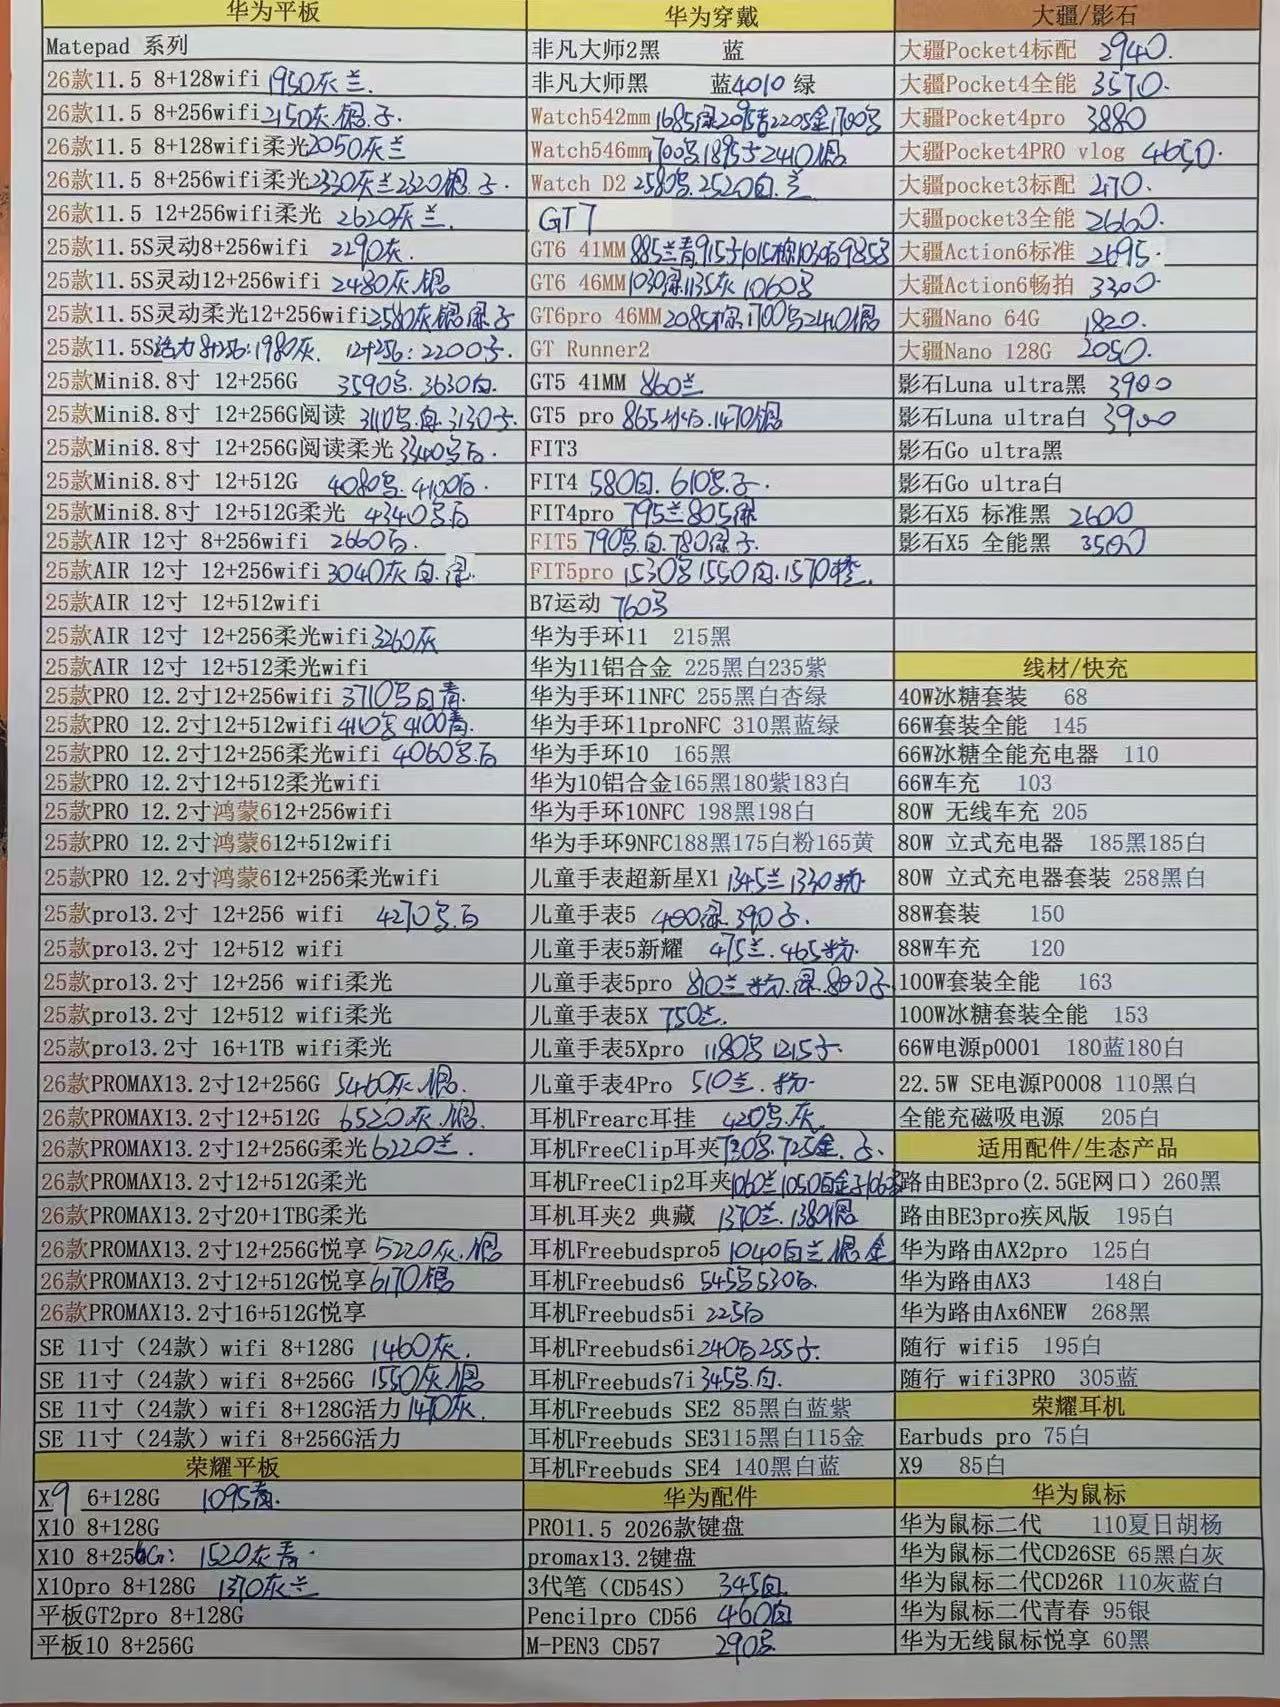 华为平板
Matepad 系列
26款11.5 8+128wifi 1950灰兰
26款11.5 8+256wifi 2150灰.银.子
26款11.5 8+128wifi柔光2050灰兰
26款11.5 8+256wifi柔光2320灰兰2320银.子.
26款11.5 12+256wifi柔光 2620灰兰.
25款11.5S灵动8+256wifi 2290灰.
25款11.5S灵动12+256wifi 2480灰.银
25款11.5S灵动柔光12+256wifi2580灰.银绿子
25款11.5S活力8+256:1980灰. 12+256:2200子.
25款Mini8.8寸 12+256G 3590黑.3630白.
25款Mini8.8寸 12+256G阅读 3110黑.白.3130子.
25款Mini8.8寸 12+256G阅读柔光3340黑白.
25款Mini8.8寸 12+512G 4080黑.4100白.
25款Mini8.8寸 12+512G柔光 4340黑白
25款AIR 12寸 8+256wifi 2660白.
25款AIR 12寸 12+256wifi3040灰.白.绿.
25款AIR 12寸 12+512wifi
25款AIR 12寸 12+256柔光wifi3260灰
25款AIR 12寸 12+512柔光wifi
25款PRO 12.2寸12+256wifi 3710黑白青.
25款PRO 12.2寸12+512wifi4110黑4100青.
25款PRO 12.2寸12+256柔光wifi 4060黑.白
25款PRO 12.2寸12+512柔光wifi
25款PRO 12.2寸鸿蒙612+256wifi
25款PRO 12.2寸鸿蒙612+512wifi
25款PRO 12.2寸鸿蒙612+256柔光wifi
25款pro13.2寸 12+256 wifi 4270黑.白
25款pro13.2寸 12+512 wifi
25款pro13.2寸 12+256 wifi柔光
25款pro13.2寸 12+512 wifi柔光
25款pro13.2寸 16+1TB wifi柔光
26款PROMAX13.2寸12+256G 5460灰.银.
26款PROMAX13.2寸12+512G 6520灰.银.
26款PROMAX13.2寸12+256G柔光6220兰.
26款PROMAX13.2寸12+512G柔光
26款PROMAX13.2寸20+1TBG柔光
26款PROMAX13.2寸12+256G悦享5220灰.银
26款PROMAX13.2寸12+512G悦享6170银
26款PROMAX13.2寸16+512G悦享
SE 11寸（24款）wifi 8+128G 1460灰.
SE 11寸（24款）wifi 8+256G 1550灰.银
SE 11寸（24款）wifi 8+128G活力1470灰.
SE 11寸（24款）wifi 8+256G活力
荣耀平板
X9 6+128G 1095青.
X10 8+128G
X10 8+256G: 1520灰青.
X10pro 8+128G 1370灰兰
平板GT2pro 8+128G
平板10 8+256G
华为穿戴
非凡大师2黑 蓝
非凡大师黑 蓝4010 绿
Watch542mm 1685绿2095青2205金1700黑
Watch546mm1700黑1895子2410银
Watch D2 2580黑.2520白.兰
GT7
GT6 41MM 885兰青915子1015棕1030白985黑
GT6 46MM1030绿1135灰1060黑
GT6pro 46MM2085棕1700黑2410银
GT Runner2
GT5 41MM 860兰
GT5 pro 865 .1470银
FIT3
FIT4 580白.610黑.子.
FIT4pro 795兰805绿
FIT5 790黑.白.780绿.子.
FIT5pro 1530黑1550白.1570橙.
B7运动 760黑
华为手环11 215黑
华为11铝合金 225黑白235紫
华为手环11NFC 255黑白杏绿
华为手环11proNFC 310黑蓝绿
华为手环10 165黑
华为10铝合金165黑180紫183白
华为手环10NFC 198黑198白
华为手环9NFC188黑175白粉165黄
儿童手表超新星X1 1345兰1330粉
儿童手表5 400绿.390子.
儿童手表5新耀 475兰.465粉.
儿童手表5pro 810兰粉.绿.800子
儿童手表5X 750兰.
儿童手表5Xpro 1180黑1215子.
儿童手表4Pro 510兰.粉.
耳机Frearc耳挂 420黑.灰.
耳机FreeClip耳夹730黑.725金.子.
耳机FreeClip2耳夹1060兰1050白金子106
耳机耳夹2 典藏 1370兰.1380银
耳机Freebudspro5 1040白兰银金
耳机Freebuds6 545黑530白.
耳机Freebuds5i 225白
耳机Freebuds6i240白255子.
耳机Freebuds7i345黑.白.
耳机Freebuds SE2 85黑白蓝紫
耳机Freebuds SE3115黑白115金
耳机Freebuds SE4 140黑白蓝
华为配件
PRO11.5 2026款键盘
promax13.2键盘
3代笔（CD54S） 345白
Pencilpro CD56 460白
M-PEN3 CD57 290黑
大疆/影石
大疆Pocket4标配 2940.
大疆Pocket4全能 3570.
大疆Pocket4pro 3880
大疆Pocket4PRO vlog 4650.
大疆pocket3标配 2170.
大疆pocket3全能 2660.
大疆Action6标准 2695.
大疆Action6畅拍 3300.
大疆Nano 64G 1820.
大疆Nano 128G 2050.
影石Luna ultra黑 3900
影石Luna ultra白 3900
影石Go ultra黑
影石Go ultra白
影石X5 标准黑 2600
影石X5 全能黑 3500
线材/快充
40W冰糖套装 68
66W套装全能 145
66W冰糖全能充电器 110
66W车充 103
80W 无线车充 205
80W 立式充电器 185黑185白
80W 立式充电器套装 258黑白
88W套装 150
88W车充 120
100W套装全能 163
100W冰糖套装全能 153
66W电源p0001 180蓝180白
22.5W SE电源P0008 110黑白
全能充磁吸电源 205白
适用配件/生态产品
路由BE3pro(2.5GE网口）260黑
路由BE3pro疾风版 195白
华为路由AX2pro 125白
华为路由AX3 148白
华为路由Ax6NEW 268黑
随行 wifi5 195白
随行 wifi3PRO 305蓝
荣耀耳机
Earbuds pro 75白
X9 85白
华为鼠标
华为鼠标二代 110夏日胡杨
华为鼠标二代CD26SE 65黑白灰
华为鼠标二代CD26R 110灰蓝白
华为鼠标二代青春 95银
华为无线鼠标悦享 60黑